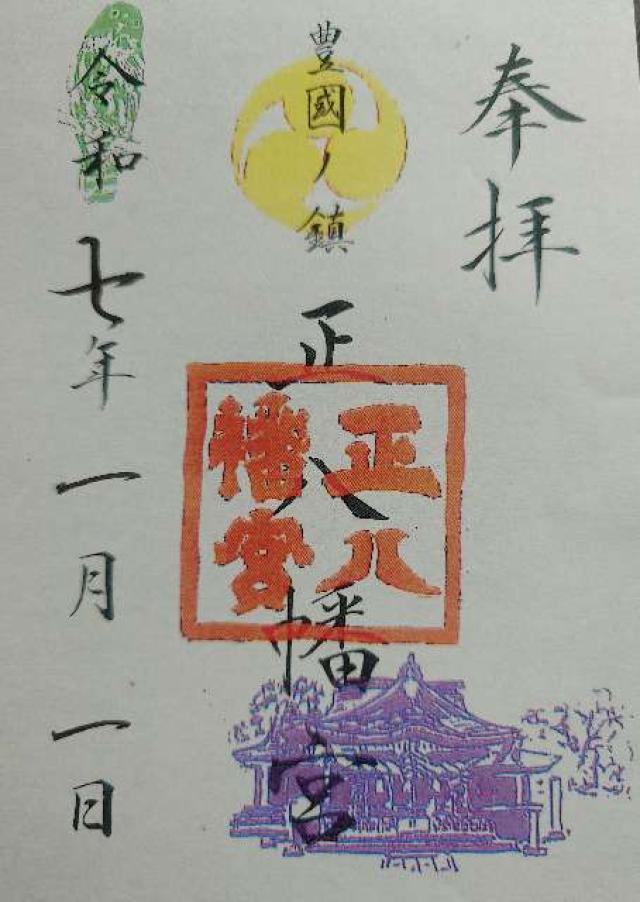 奉拝
豊國ノ鎮
正八幡宮
正八
幡宮
令和七年一月一日